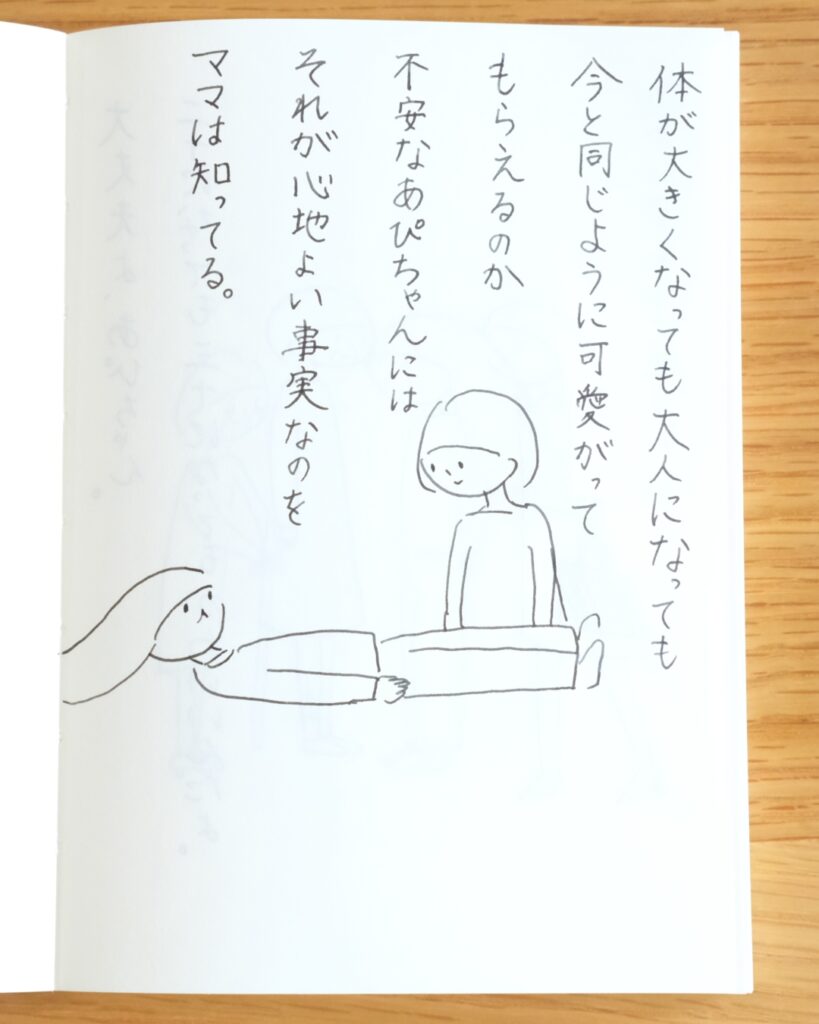 体が大きくなっても大人になっても
今と同じように可愛がって
もらえるのか
不安なあぴちゃんには
それが心地よい事実なのを
ママは知ってる。
大丈夫よ、あぴちゃん。